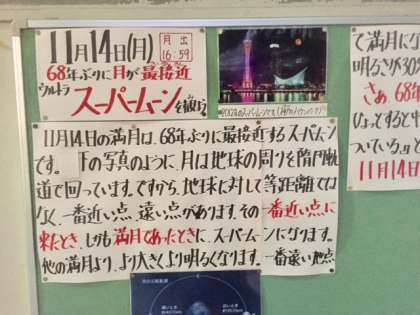 11月14日(月)
月出
16:59
68年ぶりに月が最接近
ウルトラ
スーパームーンを撮ろう
11月14日の満月は、68年ぶりに最接近するスーパームーン
です。下の写真のように、月は地球の周りを楕円軌
道で回っています。ですから、地球に対して等距離では
なく、一番近い点、遠い点があります。その一番近い点に
来たとき、しかも満月であったときに、スーパームーンになります。
他の満月より、より大きくより明るくなります。一番遠い地点
て満月にな
明るさが30%
さぁ、68年
ひょっとすると
ついている。
11月14日